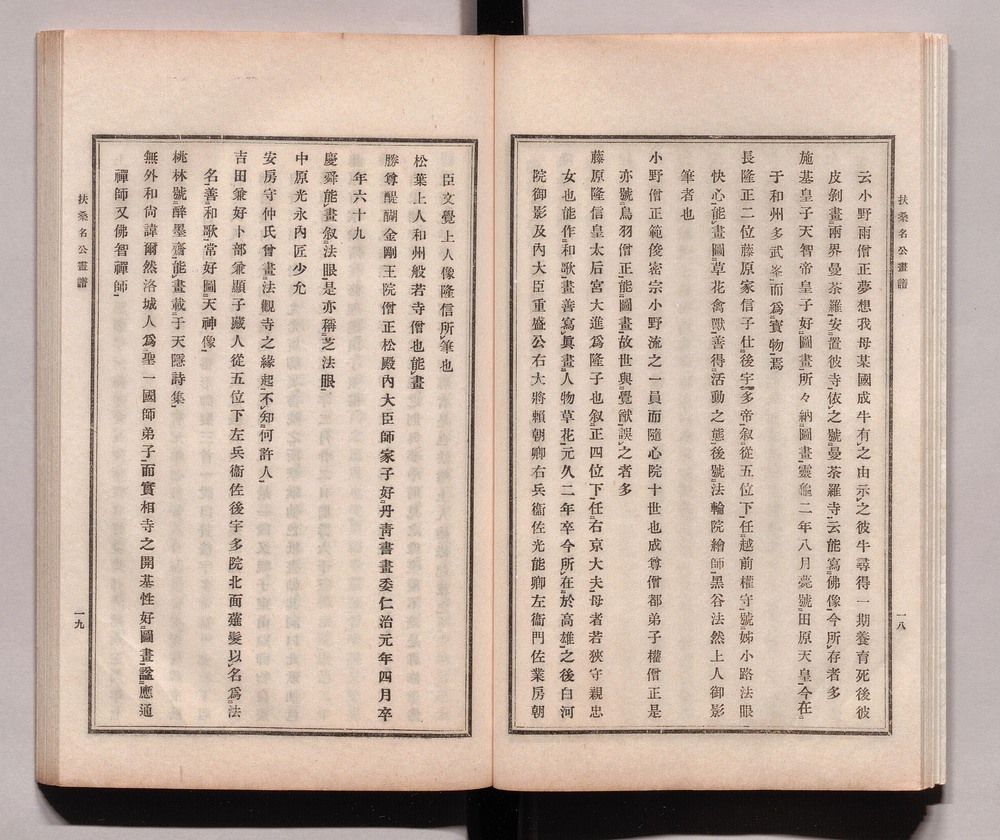 扶桑名公畫譜
一八
云小野雨僧正夢想我母某國成牛有之由示之彼牛尋得一期養育死後彼
皮剝畫兩界曼荼羅安置彼寺依之號曼荼羅寺云能寫佛像今所存者多
施基皇子天智帝皇子好圖畫所々納圖畫靈龜二年八月薨號田原天皇今在
于和州多武峯而爲寶物焉
長隆正二位藤原家信子仕後宇多帝叙從五位下任越前權守號姊小路法眼
快心能畫圖草花禽獸善得活動之態後號法輪院繪師黑谷法然上人御影
筆者也
小野僧正範俊密宗小野流之一員而隨心院十世也成尊僧都弟子權僧正是
亦號鳥羽僧正能圖畫故世與覺猷誤之者多
藤原隆信皇太后宮大進爲隆子也叙正四位下任右京大夫母者若狹守親忠
女也能作和歌畫善寫眞畫人物草花元久二年卒今所在於高雄之後白河
院御影及內大臣重盛公右大將賴朝卿右兵衞佐光能卿左衞門佐業房朝
臣文覺上人像隆信所筆也
松葉上人和州般若寺僧也能畫
勝尊醍醐金剛王院僧正松殿內大臣師家子好丹靑書畫委仁治元年四月卒
年六十九
慶舜能畫叙法眼是亦稱芝法眼
中原光永內匠少允
安房守仲氏曾畫法觀寺之緣起不知何許人
吉田兼好卜部兼顯子藏人從五位下左兵衞佐後宇多院北面薙髮以名爲法
名善和歌常好圖天神像
桃林號醉墨齋能畫載于天隱詩集
無外和尙諱爾然洛城人爲聖一國師弟子而實相寺之開基性好圖畫諡應通
禪師又佛智禪師
扶桑名公畫譜
一九